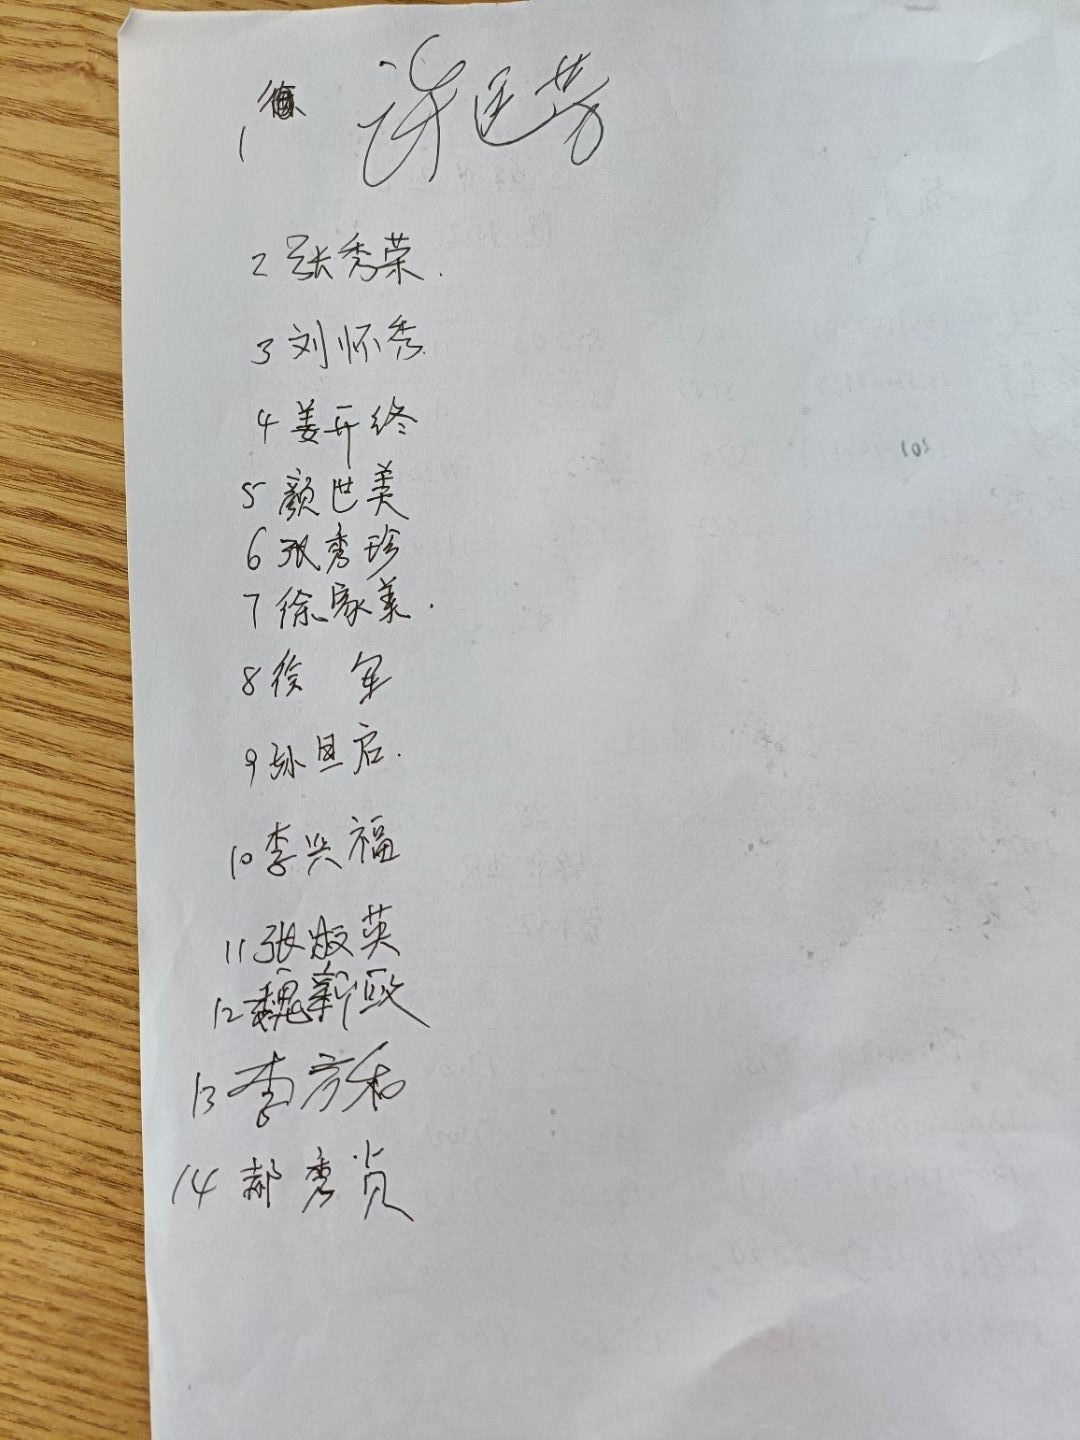 1 许廷芳
2 张秀荣.
3 刘怀秀.
4 姜开终
5 颜世美
6 张秀珍
7 徐家美.
8 徐 军
9 孙旦启.
10 李兴福
11 张淑英
12 魏新
13 李方和
14 郝秀贞
201